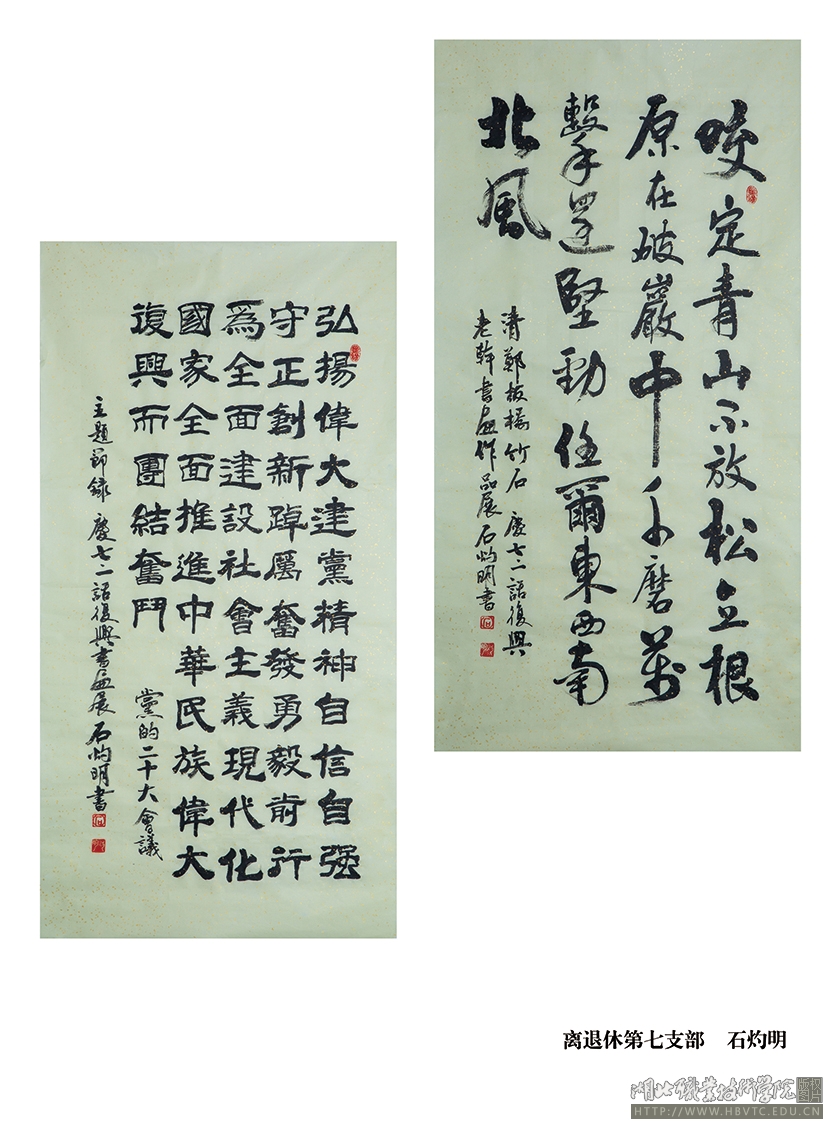 咬定青山不放松立根
原在破巖中千磨萬
擊還堅勁任爾東西南
北風
清鄭板橋竹石 慶七一話復興
老幹書畫作品展 石灼明書
弘揚偉大建黨精神自信自强
守正創新踔厲奮發勇毅前行
爲全面建設社會主義現代化
國家全面推進中華民族偉大
復興而團結奮鬥
黨的二十大會議
主題節錄 慶七一話復興書畫展 石灼明書
离退休第七支部 石灼明
湖北職業技術学院 版权图片
HTTP://WWW.HBVTC.EDU.CN